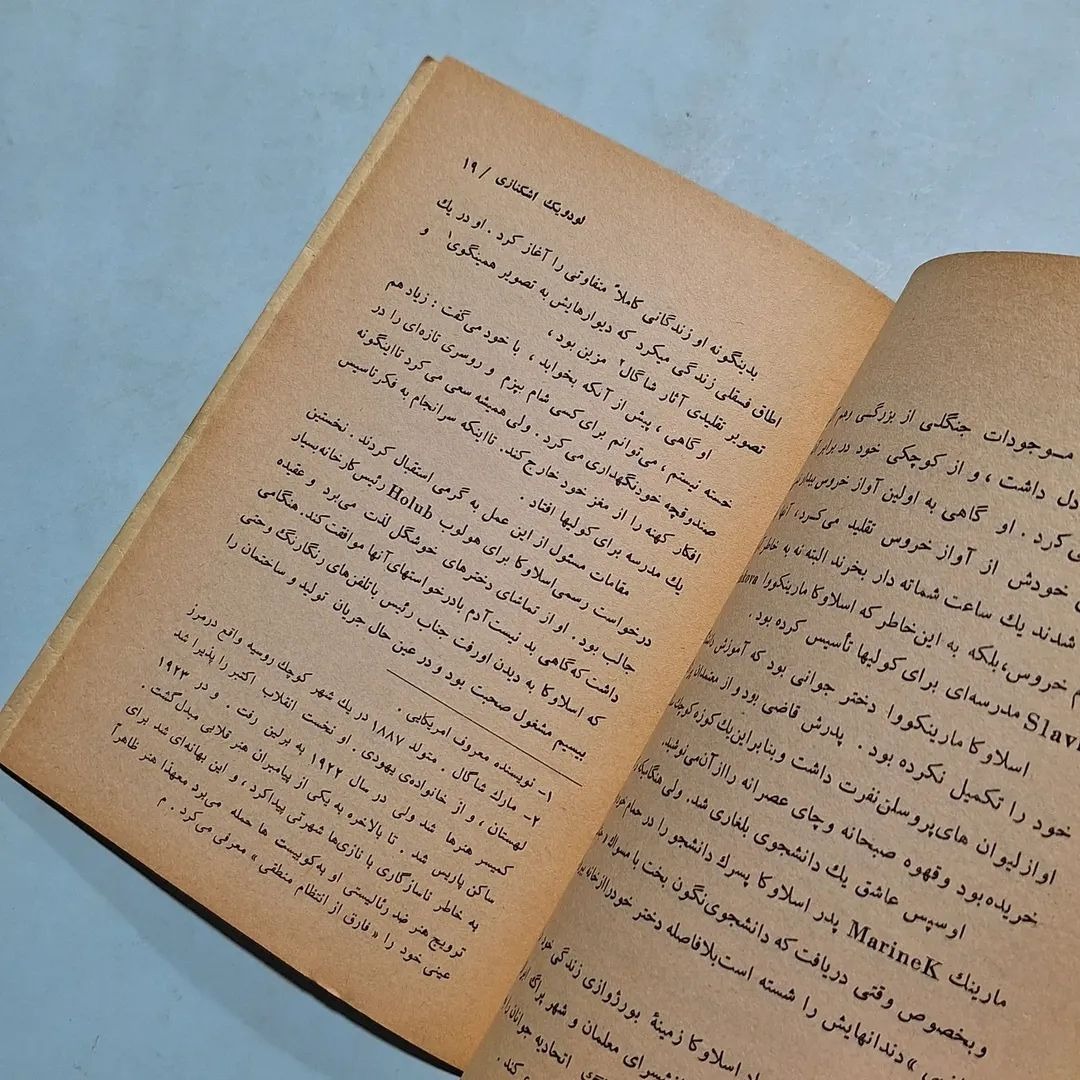 موجودات جنگلی از بزرگسی
دل داشت ، و از کوچکی خود در برابر
کرد . او گاهی به اولین آواز خروس
خودش از آواز خروس تقلید می‌کسرد،
شدند یك ساعت شماته دار بخرند البته نه به خاطر
خروس،بلکه به این‌خاطر که اسلاوکا مارینکووا
مدرسه‌ای برای کولیها تأسیس کرده بود .
اسلاوکا مارینکووا دختر جوانی بود که آموزش
خود را تکمیل نکرده بود . پدرش قاضی بود و از معتمدان
اوازلیوان های‌پروسلن‌نفرت داشت وبنابراین‌یك کوزه
خریده‌بود وقهوه صبحانه وچای عصرانه رااز آن‌می‌نوشید.
اوسپس عاشق یك دانشجوی بلغاری شد. ولی
مارینك MarineK پدر اسلاوکا پسرك دانشجو را در حمام
وبخصوص وقتی دریافت که دانشجوی‌نگون بخت با مسواك
دندانهایش را شسته است‌بلافاصله دختر خودرا ازخانه
اسلاوکا زمینهٔ بورژوازی زندگی
معلمان و شهر پراگ
اتحادیه جوانان را
کند .
لودویك اشکنازی / ۱۹
بدینگونه او زندگانی کاملاً متفاوتی را آغاز کرد . او در یك
اطاق فسقلی زندگی میکرد که دیوارهایش به تصویر همینگوی۱ و
تصویر تقلیدی آثار شاگال۲ مزین بود ،
او گاهی ، پیش از آنکه بخوابد ، با خود می‌گفت : زیاد هم
خسته نیستم ، می‌توانم برای کسی شام بپزم و روسری تازه‌ای را در
صندوقچه خودنگهداری می کرد . ولی همیشه سعی می کرد تااینگونه
افکار کهنه را از مغز خود خارج کند. تااینکه سرانجام به فکر تاسیس
یك مدرسه برای کولیها افتاد .
مقامات مسئول از این عمل به گرمی استقبال کردند . نخستین
درخواست رسمی‌اسلاوکا برای هولوب Holub رئیس‌کارخانه‌بسیار
جالب بود . او از تماشای دخترهای خوشگل لذت می‌برد و عقیده
داشت که‌گاهی بد نیست‌آدم بادرخواستهای‌آنها موافقت کند. هنگامی
که اسلاوکا به دیدن اورفت جناب رئیس باتلفن‌های رنگارنگ وحتی
بیسیم مشغول صحبت بود و در عین حال جریان تولید و ساختمان را
۱- نویسنده معروف امریکایی .
۲- مارك شاگال . متولد ۱۸۸۷ در یك شهر کوچك روسیه واقع درمرز
لهستان ، و از خانواده‌ی یهودی . او نخست انقلاب اکتبر را پذیرا شد
کمیسر هنرها شد ولی در سال ۱۹۲۲ به برلین رفت . و در ۱۹۲۳
ساکن پاریس شد . تا بالاخره به یکی از پیامبران هنر قلابی مبدل گشت .
به خاطر ناسازگاری با نازی‌ها شهرتی پیداکرد ، و این بهانه‌ای شد برای
ترویج هنر ضد رئالیستی او به‌کوبیست ها حمله می‌برد معهذا هنر ظاهراً
عینی خود را « فارق از انتظام منطقی » معرفی می‌کرد . م